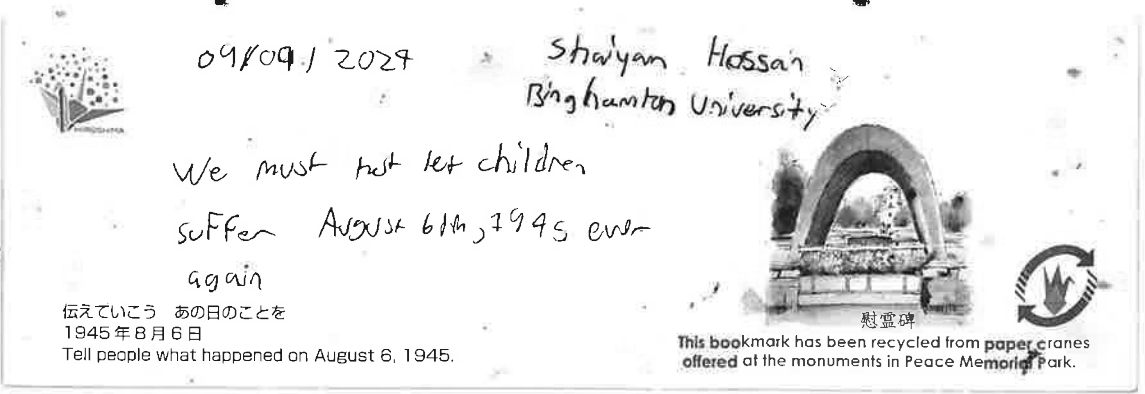 09/09/2024
Shaiyan Hossain
Binghamton University
HIROSHIMA
We must not let children
suffer August 6th, 1945 ever
again
伝えていこう あの日のことを
1945年8月6日
Tell people what happened on August 6, 1945.
慰霊碑
This bookmark has been recycled from paper cranes
offered at the monuments in Peace Memorial Park.